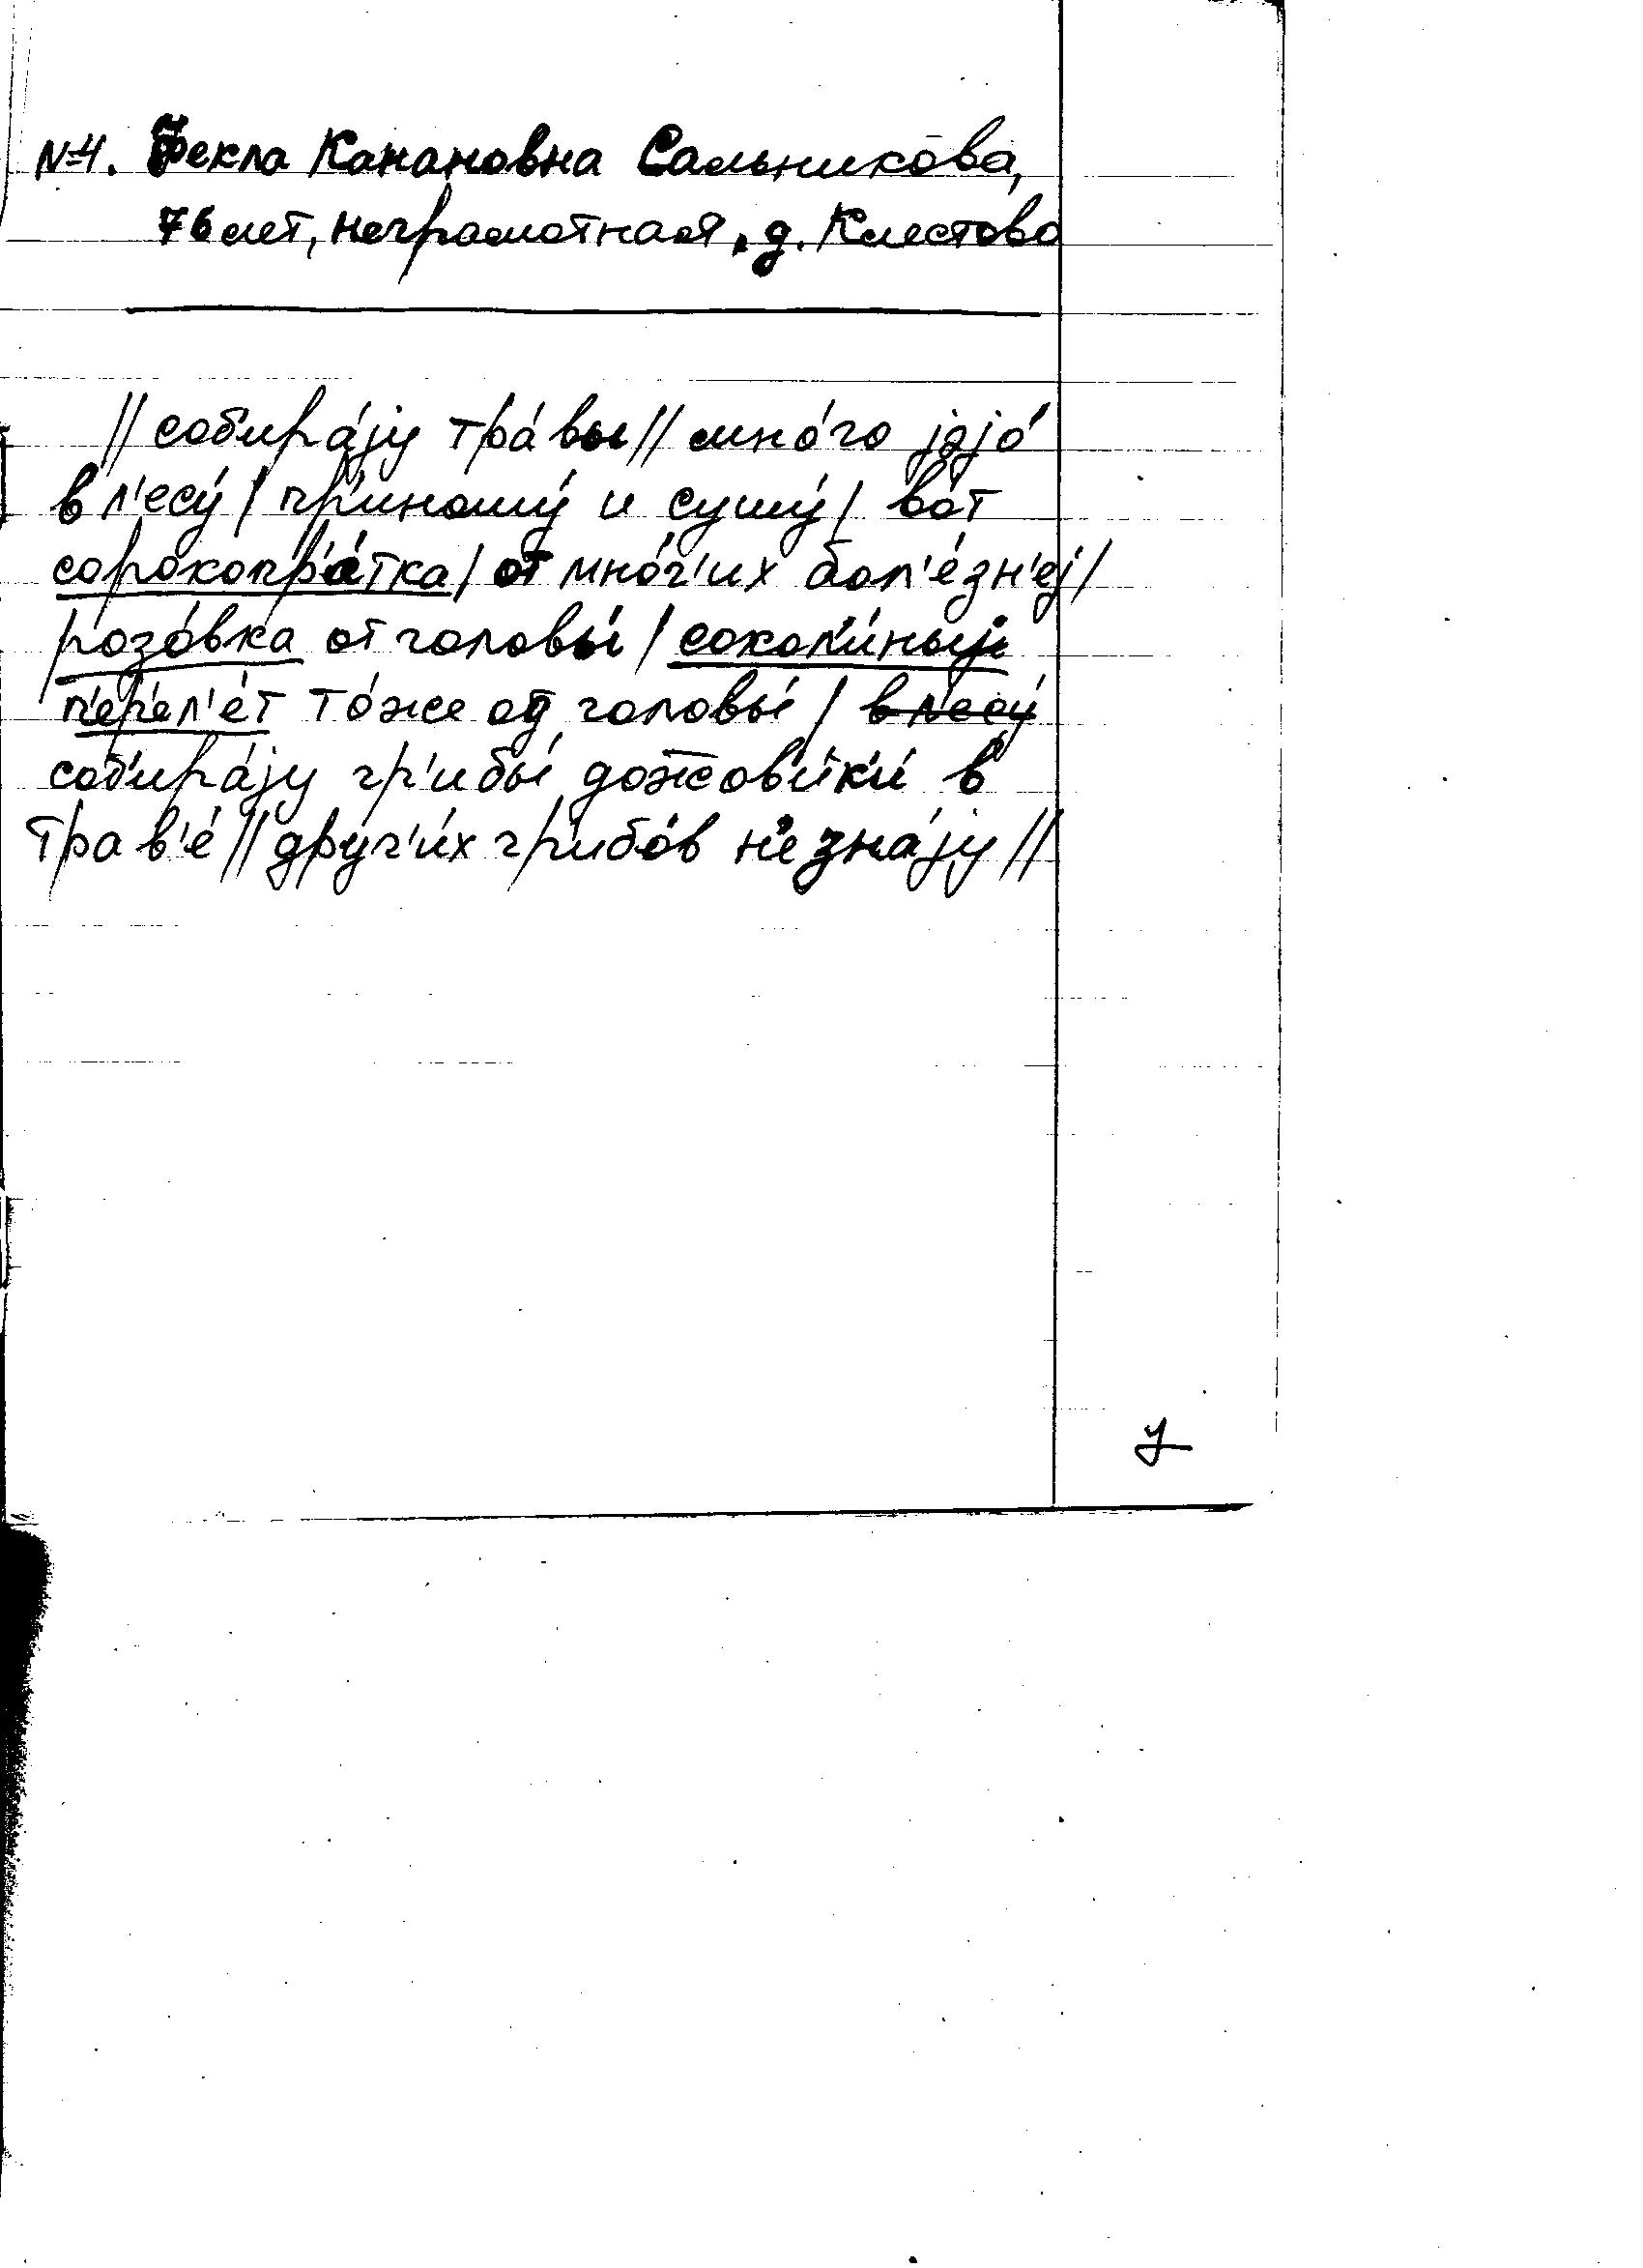 №4. Фекла Канановна Сальникова,
76 лет, неграмотная, д. Клестово
// соб'ира́jу тра́вы // мно́го jэjо́
в л'есу́ / пр'иношу́ и сушу́ / во́т
сорокопр'а́тка / от мно́г'их бол'е́зн'еj /
розо́вка от головы́ / сокол'и́ныjе
п'ер'ел'е́т то́же од головы́ / в л'есу́
соб'ира́jу гр'ибы́ дожов'ик'и́ в
трав'е́ // друг'и́х гр'ибо́в н'е зна́jу //
У